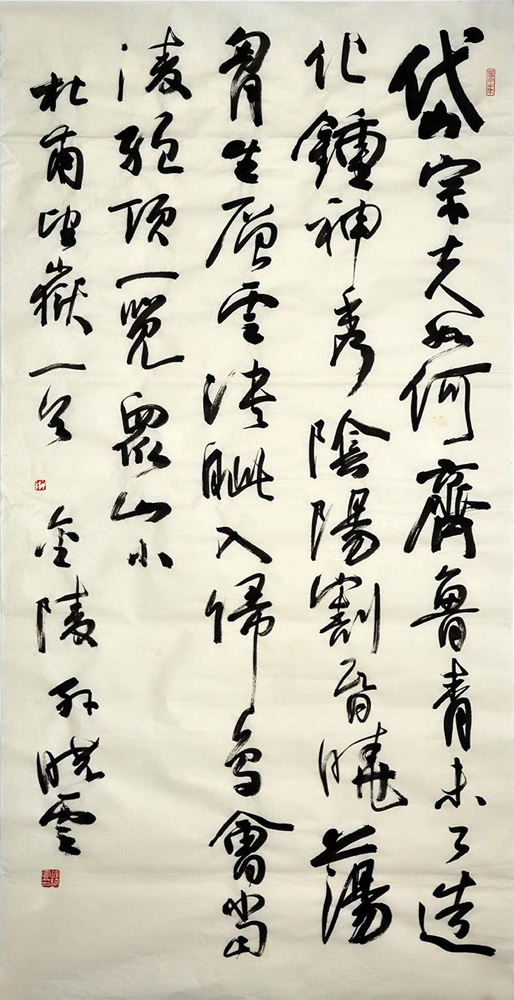 岱宗夫如何齊魯青未了造
化鍾神秀陰陽割昏曉蕩
胷生層雲決眦入歸鳥會當
淩絕頂一覽眾山小
杜甫望嶽一首 金陵孫曉雲